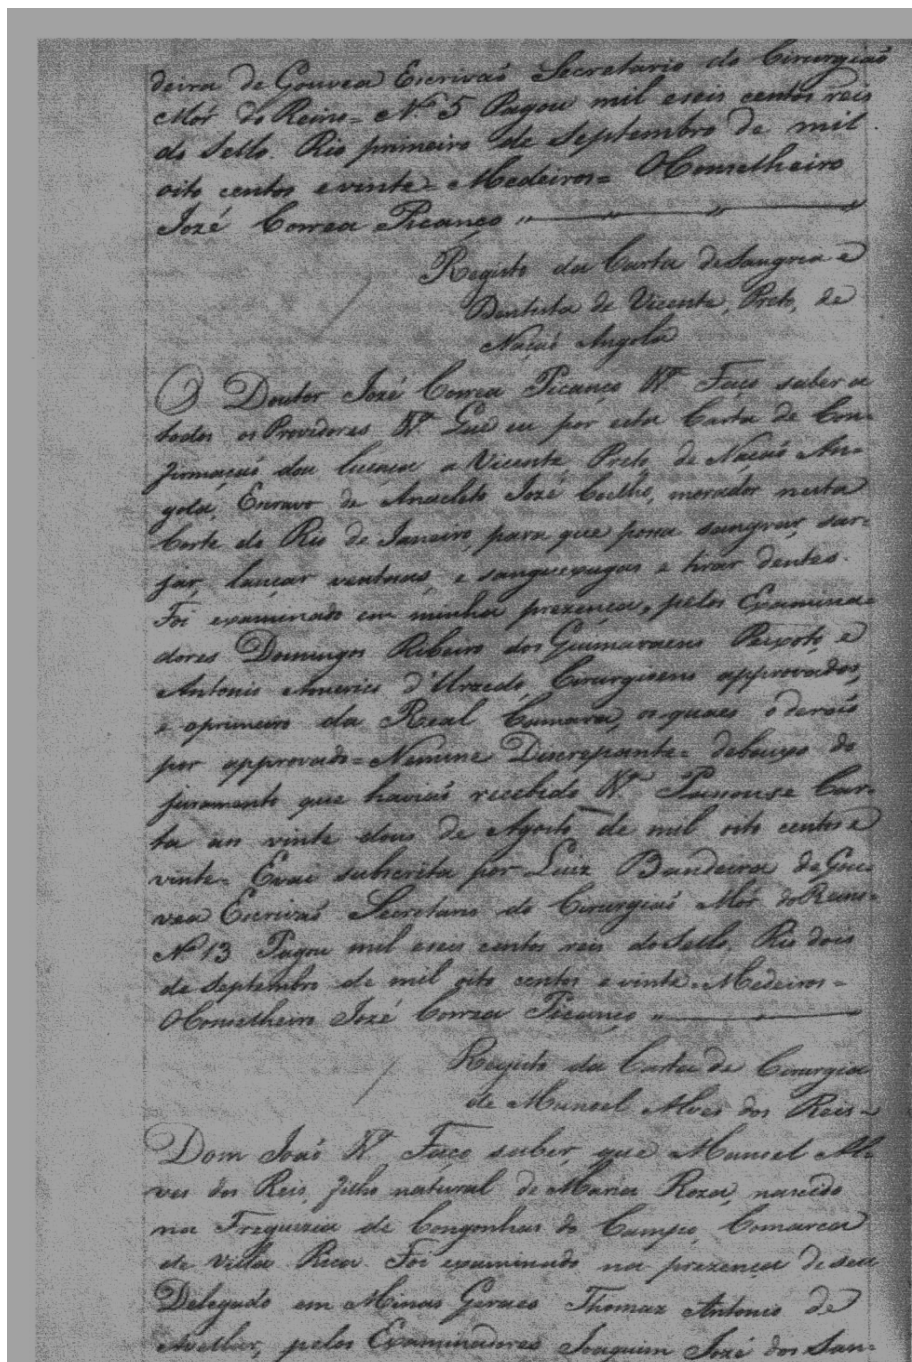 deira de Gouvea Escrivaõ Secretario do Cirurgiaõ
Mór do Reino = Nº 5 Pagou mil eseis centos reis
do Sello. Rio primeiro de Septembro de mil
oito centos evinte = Medeiros = OConselheiro
Jozé Correa Picanço "
Registo da Carta deSangria e
Dentista de Vicente, Preto, de
Naçaõ Angola
O Doutor Jozé Correa Picanço Faço saber a
todos os Provedores Que eu por esta Carta de Con-
firmaçaõ dou licença a Vicente, Preto, de Naçaõ An-
gola, Escravo de Anacleto Jozé Coelho, morador nesta
Corte do Rio de Janeiro, para que possa sangrar, sar-
jar, lançar ventosas, e sanguexugas e tirar dentes.
Foi examinado em minha prezença, pelos Examina-
dores Domingos Ribeiro dos Guimaraens Peixoto, e
Antonio Americo d'Urzedo, Cirurgioens approvados,
e oprimeiro da Real Camara, os quaes o deraõ
por approvado = Nemine Discrepante = debaixo do
juramento que haviaõ recebido Passouse Car-
ta aos vinte dous de Agosto de mil oito centos e
vinte. Evae subscrita por Luiz Bandeira de Gou-
vea Escrivaõ Secretario do Cirurgiaõ Mór do Reino =
Nº 13 Pagou mil eseis centos reis do Sello, Rio dois
de Septembro de mil oito centos e vinte = Medeiros =
OConselheiro Jozé Correa Picanço "
Registo da Carta de Cirurgia
de Manoel Alves dos Reis =
Dom Joaõ Faço saber, que Manoel Al-
ves dos Reis, filho natural de Maria Roza, nascido
na Freguezia de Congonhas do Campo, Comarca
de Villa Rica. Foi examinado na prezença de seu
Delegado em Minas Geraes Thomaz Antonio de
Avellar, pelos Examinadores Joaquim Jozé dos San-